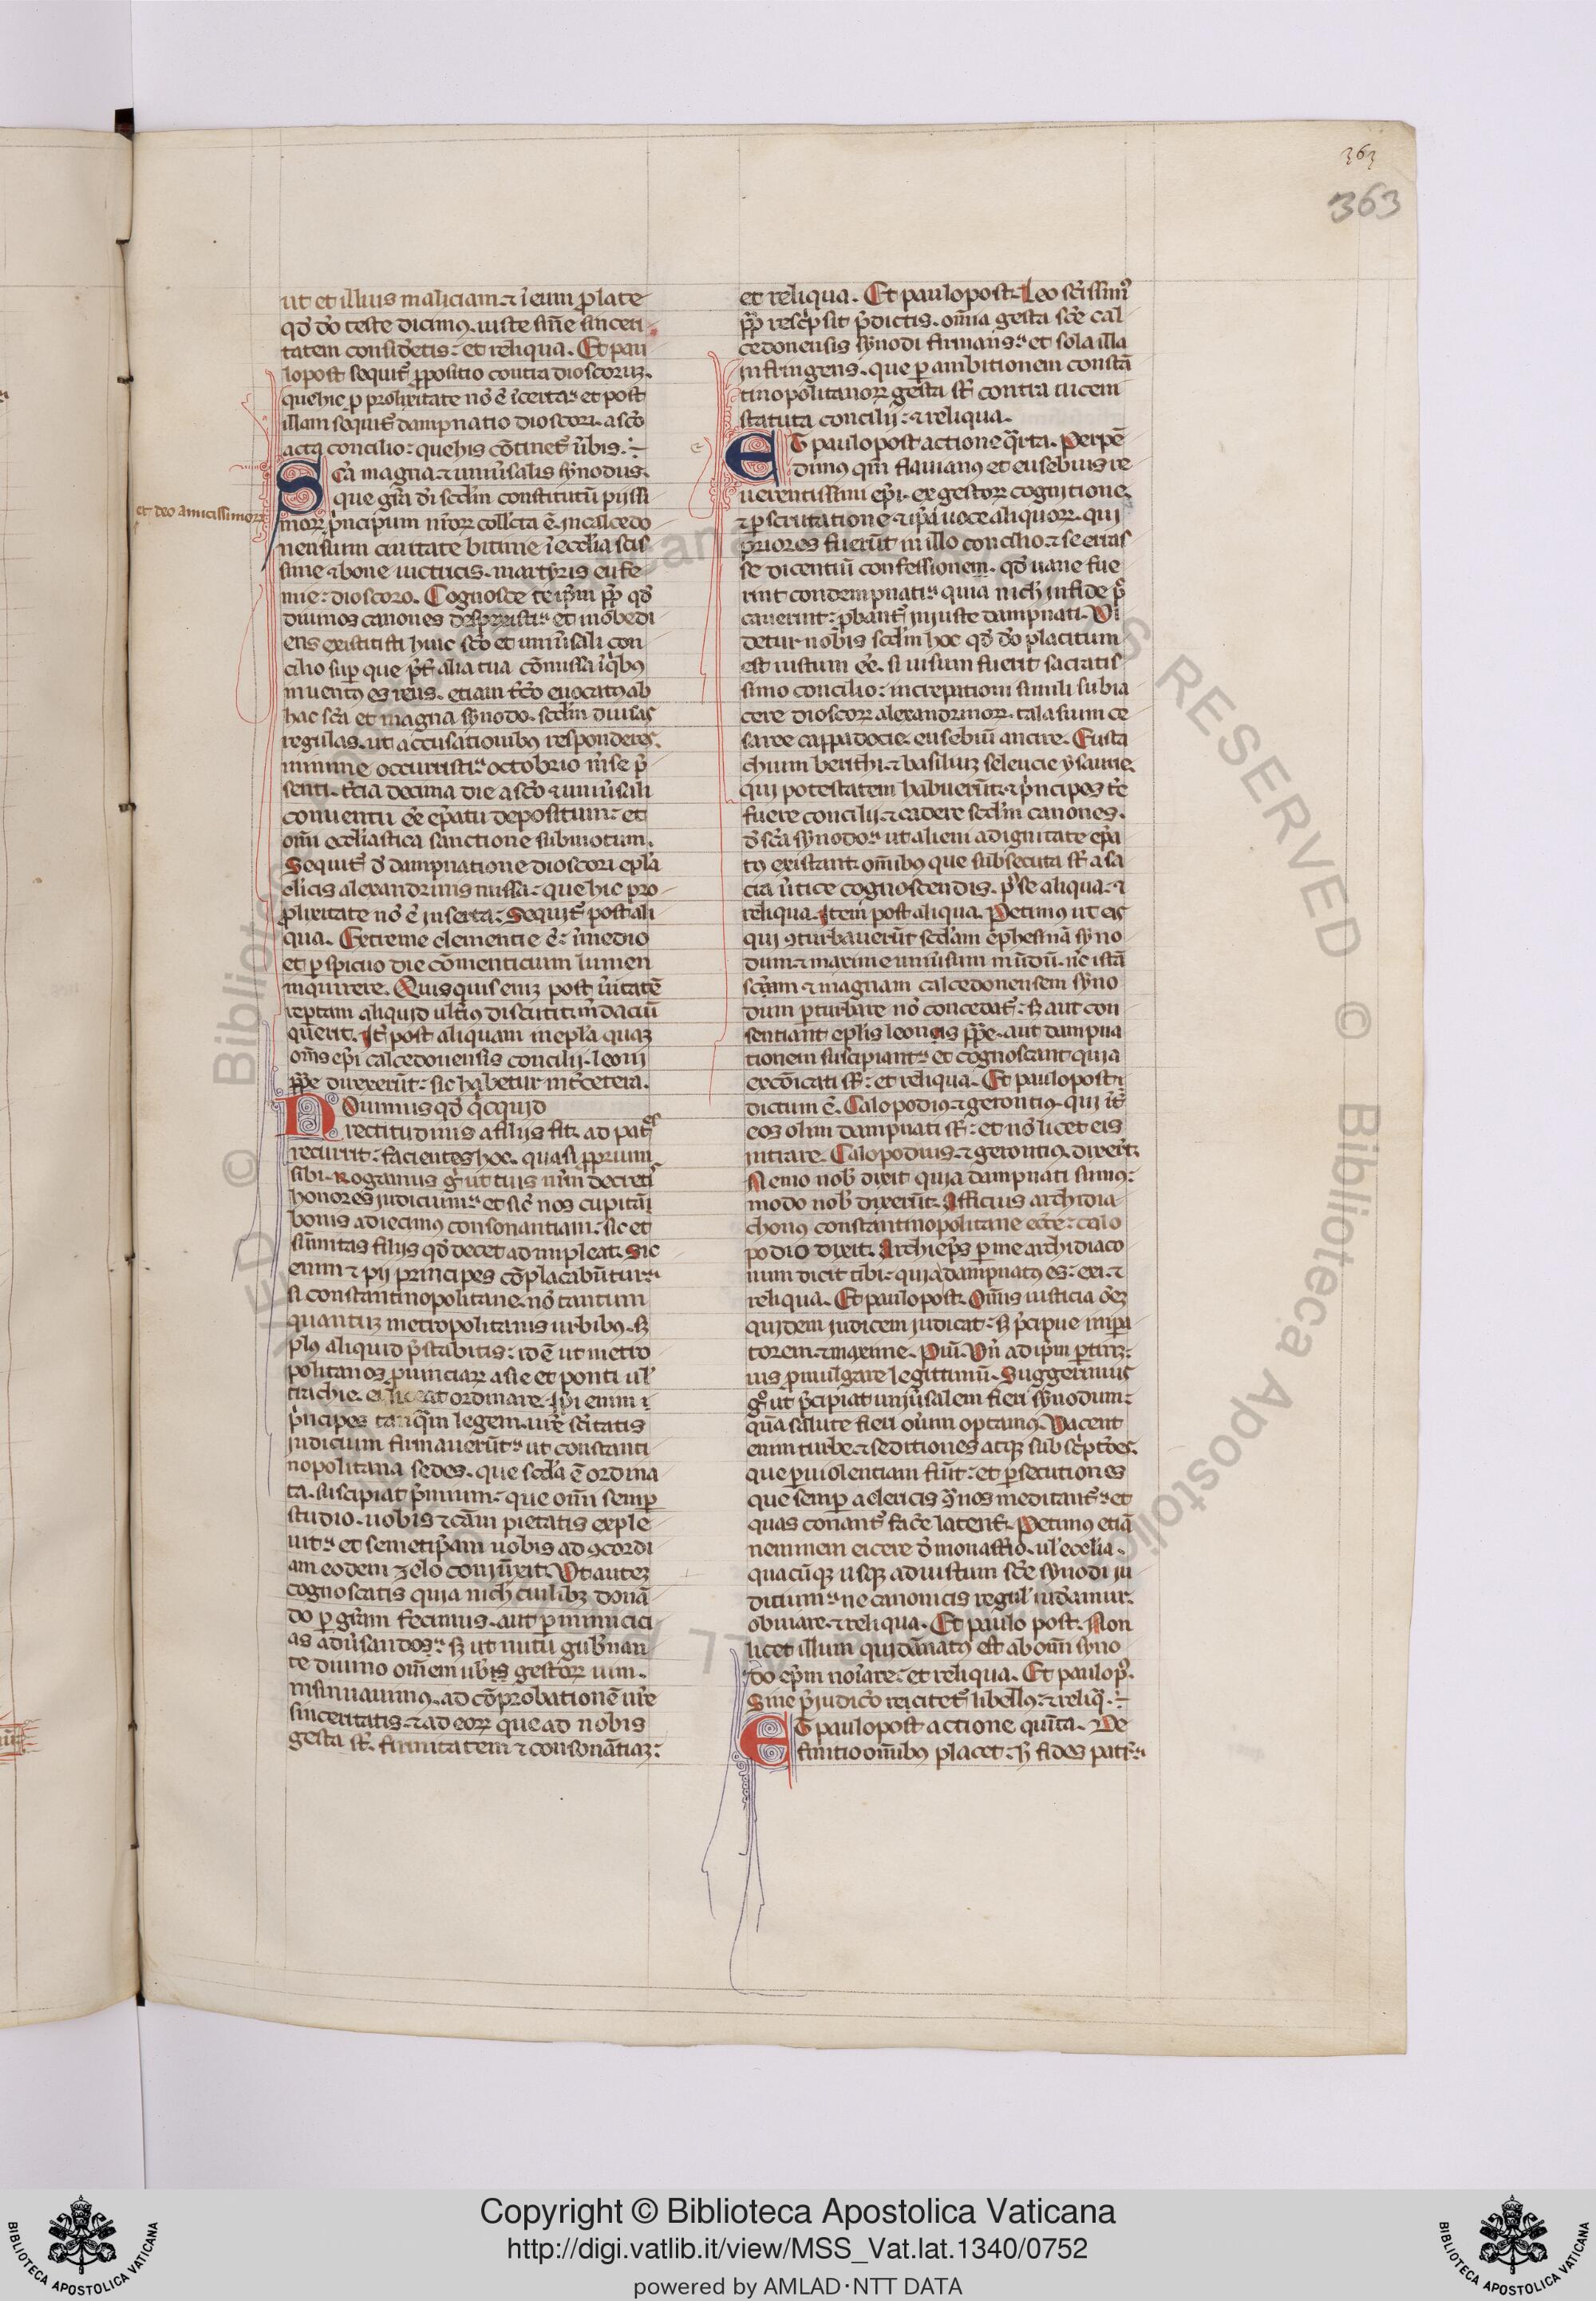 363
363
ut et illius maliciam ⁊ ī eum prolate
qd̄ dō teste dicimꝰ iuste sn̄e sinceri
tatem considetis et reliqua. Et pau
lopost sequit̄ ꝓpositio contra dioscoruꝫ
que hic ꝓ prolixitate nō ē īserta et post
illam sequit̄ dampnatio dioscori a scō
acta concilio que his cōtinet̄ ūbis
Scā magna ⁊ uniūsalis synodus
que grā dī scd̄m constitutū pijssi
et deo amicissimorꝝ
morꝝ prīncipum nr̄orꝝ coll̄cta ē in calcedo
nensium ciuitate bitinie ī eccl̄ia scīs
sime ⁊ bone uictricis martyris eufe
mie dioscoro. Cognosce te ip̄m ꝓp qd̄
diuinos canones despexisti et inobedi
ens extitisti huic scō et uniūsali con
cilio sup que p̄t alia tua cōmissa ī qibꝰ
inuentꝰ es reus etiam t̄cio euocatꝰ ab
hac scā et magna synodo scd̄m diuinas
regulas ut accusationibꝰ responderes
minime occurristi octobrio mēse p̄
senti t̄cia decima die a scō ⁊ uniūsali
conuentu eē ep̄atu depositum et
omī eccl̄iastica sanctione submotum
Sequit̄ d̄ dampnatione dioscori epl̄a
clicis alexandrinis missa que hic pro
prolixitate nō ē inserta Sequit̄ post ali
qua. Extreme clementie ē in medio
et ꝑspicuo die cōmenticium lumen
inquirere. Quisquis eniꝫ post ūitatē
reptam aliquid ultīꝰ discutit mēdaciū
querit. Itē post aliquam in epl̄a quaꝫ
om̄s ep̄i calcedonensis concilij leoni
pp̄e direxerūt sic habetur int̄ cetera.
Nouimus qd̄ qicquid
rectitudinis a filijs fit ad patres
recurrit facientes hoc quasi ꝓprium
sibi. Rogamus ḡ ut tuis nr̄m decretis
honores iudicium et sic nos cupitāi
bonis adiecimꝰ consonantiam sic et
sūmitas filijs qd̄ decet adimpleat. Sic
enim ⁊ pij principes cōplacabūtur
si constantinopolitane nō tantum
quantuꝫ metropolitanis urbibꝰ sꝫ
plus aliquid p̄stabitis id ē ut metro
politanos prouinciarꝝ asie et ponti ul̄
trachie ei liceat ordinare. Ipi enim
p̄ncipes tanqm legem ur̄e scītatis
iudicium firmauerūt ut constanti
nopolitana sedes que scd̄a ē ordina
ta suscipiat p̄mium que omī semp
studio uobis ⁊ cām pietatis exple
uit et semetip̄am uobis ad ꝯcordi
am eodem zelo coniūxit. Ut auteꝫ
cognoscatis quia nich̄ ciuilibꝫ donā
do ꝑ grām fecimus aut ꝑ inimicici
as adūsandos sꝫ ut nutu gub̄nan
te diuino om̄em ub̄is gestorꝝ uim
insinuauimꝰ ad cōprobationē ur̄e
sinceritatis ⁊ ad eorꝝ que ad nobis
gesta st̄ firmitatem ⁊ consonātiaꝫ
et reliqua. Et paulopost. Leo scīssimꝰ
pp̄ rescp̄sit p̄dictis omīa gesta scē cal
cedonensis synodi firmans et sola illa
infringens que ꝑ ambitionem constā
tinopolitanorꝝ gesta st̄ contra nicem
statuta concilij ⁊ reliqua.
Et paulopost actione q̄rta. Perpē
dimꝰ qm̄ flauianꝰ et eusebius re
uerentissimi ep̄i ex gestorꝝ cognitione
⁊ ꝑscrutatione ⁊ ip̄a uoce aliquorꝝ qui
priores fuerūt in illo concilio ⁊ se erras
se dicentiū confessionem qd̄ uane fue
rint condempnati quia nich̄ in fide p̄
cauerint ꝓbant̄ iniuste dampnati. Vi
detur nobis scd̄m hoc qd̄ dō placitum
est iustum eē si uisum fuerit sacratis
simo concilio increpationi simili subia
cere dioscorꝝ alexandrinorꝝ talasium ce
saree cappadocie eusebiū ancire. Eusta
chium berithi ⁊ basiliuꝫ seleucie ysaurie
qui potestatem habuerūt ⁊ p̄ncipes tē
fuere concilij ⁊ cadere scd̄m canones
d̄ scā synodo ut alieni a dignitate ep̄a
tꝰ existant omībꝰ que subsecuta st̄ a sa
cra ūtice cognoscendis p̄se aliqua ⁊
reliqua. Item post aliqua. Petimꝰ ut eis
qui ꝯturbauerūt scd̄am ephesinā syno
dum ⁊ maxime uniūsum mūdū nē istā
scām ⁊ magnam calcedonensem syno
dum ꝑturbare nō concedat̄ sꝫ aut con
sentiant epl̄is leonis pp̄e aut dampna
tionem suscipiant et cognoscant quia
excōicati st̄ et reliqua. Et paulopost
dictum ē. Calopodiꝰ ⁊ gerontiꝰ qui īt̄
eos olim dampnati st̄ et nō licet eis
intrare. Calopodius ⁊ gerontiꝰ dixert̄
Nemo nob̄ dixit quia dampnati sumꝰ
modo nob̄ dixerūt. Afficius archidia
chonꝰ constantinopolitane eccē calo
podio dixit. Archiep̄s ꝑ me archidiaco
num dicit tibi quia dampnatꝰ es exi ⁊
reliqua. Et paulopost. Omīs iusticia oēꝫ
quidem iudicem iudicat sꝫ p̄cipue impa
torem ⁊ maxime. Piū. Vn̄ ad ip̄m ꝑtineꝫ
ius ꝓmulgare legittimū. Suggerimus
gͦ ut p̄cipiat uniūsalem fieri synodum
q̄ꝫ salute fieri oīum optamꝰ. Vacent
enim turbe ⁊ seditiones atqꝫ subscp̄tōes
que ꝑ uiolentiam fiūt et ꝑsecutiones
que semp a clericis ꝯ̄ nos meditant̄ et
quas conant̄ facē latent̄. Petimꝰ etiā
neminem eicere d̄ monast̄io ul̄ eccl̄ia
quacūqꝫ usqꝫ ad iustum scē synodi iu
dicium ne canonicis regul̄ uideamur
obuiare ⁊ reliqua. Et paulo post. Non
licet illum qui dānatꝰ est ab omī syno
do ep̄m noīare et reliqua. Et paulo pꝰ.
Sine p̄iudicō recitet̄ libellꝰ ⁊ reliq̄.
Et paulopost actione quīta. De
finitio omībꝰ placet h̄ fides patrꝫ
Copyright © Biblioteca Apostolica Vaticana
http://digi.vatlib.it/view/MSS_Vat.lat.1340/0752
powered by AMLAD·NTT DATA
BIBLIOTECA APOSTOLICA VATICANA
BIBLIOTECA APOSTOLICA VATICANA